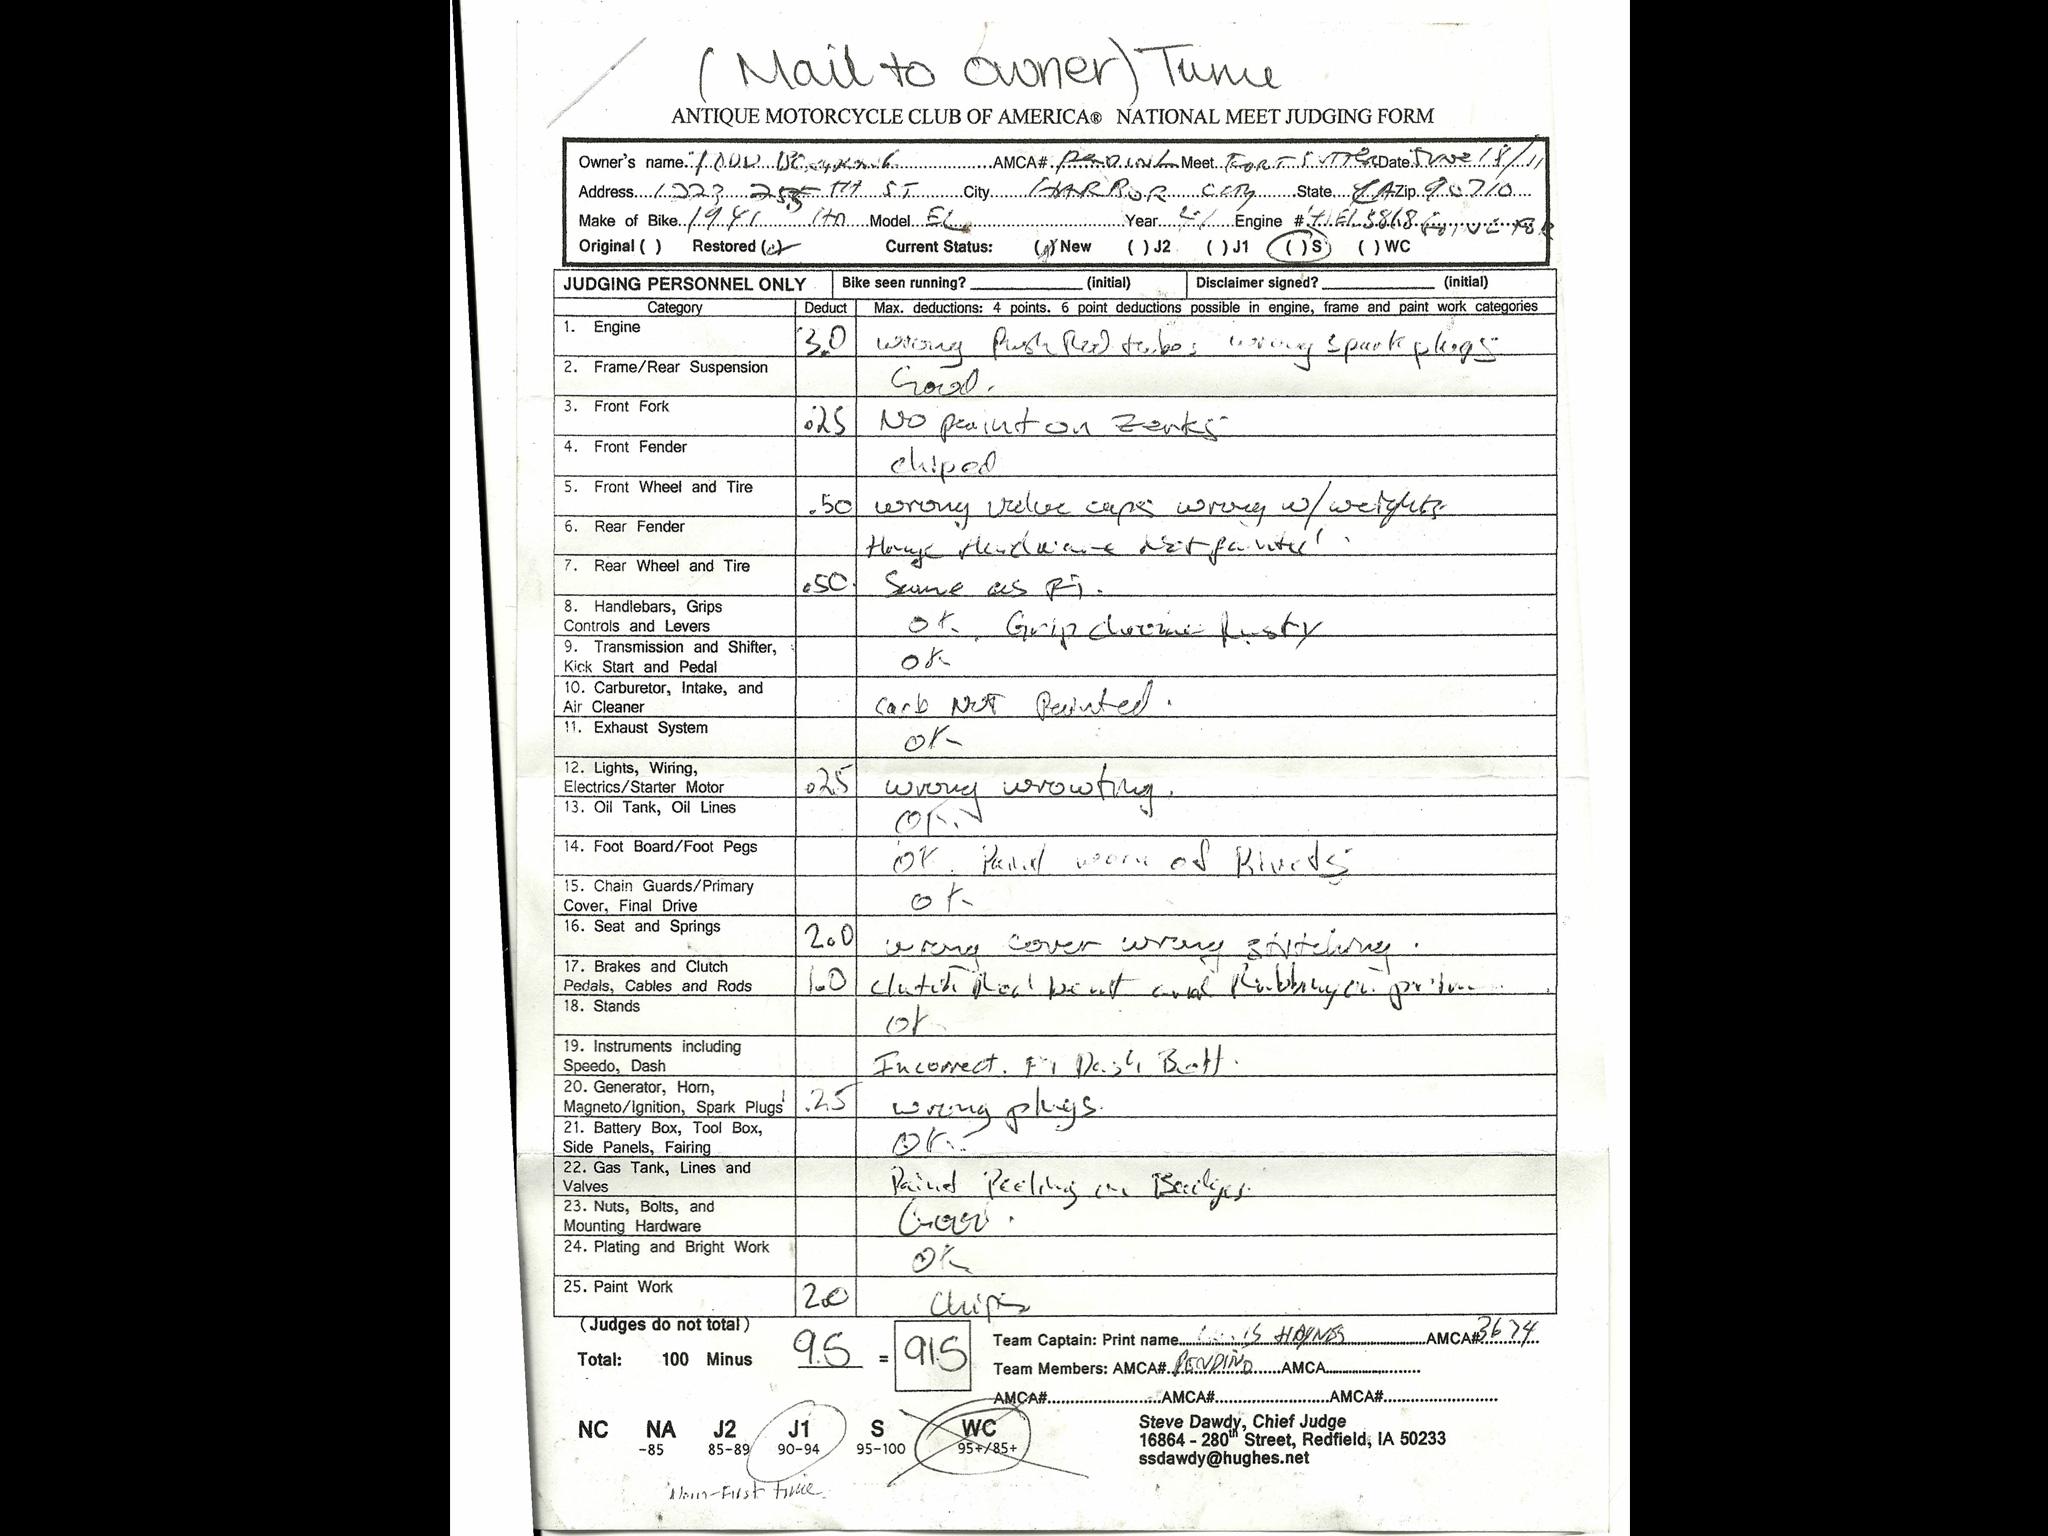 (Mail to owner)
ANTIQUE MOTORCYCLE CLUB OF AMERICA® NATIONAL MEET JUDGING FORM
Owner's name AMCA# PENDING Meet FORT SUTTER Date JUNE 18/11
Address 1323 255 TH ST City HARBOR City State CA Zip 90710
Make of Bike 1941 HD Model EL Year 41 Engine #
Original ( ) Restored (✓) Current Status: (✓) New ( ) J2 ( ) J1 ( ) S ( ) WC
JUDGING PERSONNEL ONLY Bike seen running? (initial) Disclaimer signed? (initial)
Category Deduct Max. deductions: 4 points. 6 point deductions possible in engine, frame and paint work categories
1. Engine 3.0 wrong Push Rod tubes wrong spark plugs
2. Frame/Rear Suspension Good.
3. Front Fork .25 No paint on Zerks
4. Front Fender chiped
5. Front Wheel and Tire .50 wrong valve caps wrong w/weights
6. Rear Fender Hinge Hardware Not painted
7. Rear Wheel and Tire .50 Same as Ft.
8. Handlebars, Grips
Controls and Levers OK. Grip chrome Rusty
9. Transmission and Shifter,
Kick Start and Pedal OK
10. Carburetor, Intake, and
Air Cleaner carb Not Painted.
11. Exhaust System OK
12. Lights, Wiring,
Electrics/Starter Motor .25 wrong
13. Oil Tank, Oil Lines OK.
14. Foot Board/Foot Pegs OK. Paint worn of Rivets
15. Chain Guards/Primary
Cover, Final Drive OK
16. Seat and Springs 2.0 wrong cover wrong stitching.
17. Brakes and Clutch
Pedals, Cables and Rods 1.0 clutch Rod bent and Rubbing on
18. Stands OK
19. Instruments including
Speedo, Dash Incorrect. Ft Dash
20. Generator, Horn,
Magneto/Ignition, Spark Plugs .25 wrong plugs.
21. Battery Box, Tool Box,
Side Panels, Fairing OK.
22. Gas Tank, Lines and
Valves Paint Peeling on Badges.
23. Nuts, Bolts, and
Mounting Hardware Good.
24. Plating and Bright Work OK
25. Paint Work 2.0 Chips
(Judges do not total)
Total: 100 Minus 9.5 = 91.5
Team Captain: Print name HAYNES AMCA# 3674
Team Members: AMCA# PENDING AMCA
AMCA# AMCA# AMCA#
NC NA J2 J1 S WC
-85 85-89 90-94 95-100 95+/85+
Steve Dawdy, Chief Judge
16864 - 280th Street, Redfield, IA 50233
ssdawdy@hughes.net
New-First time